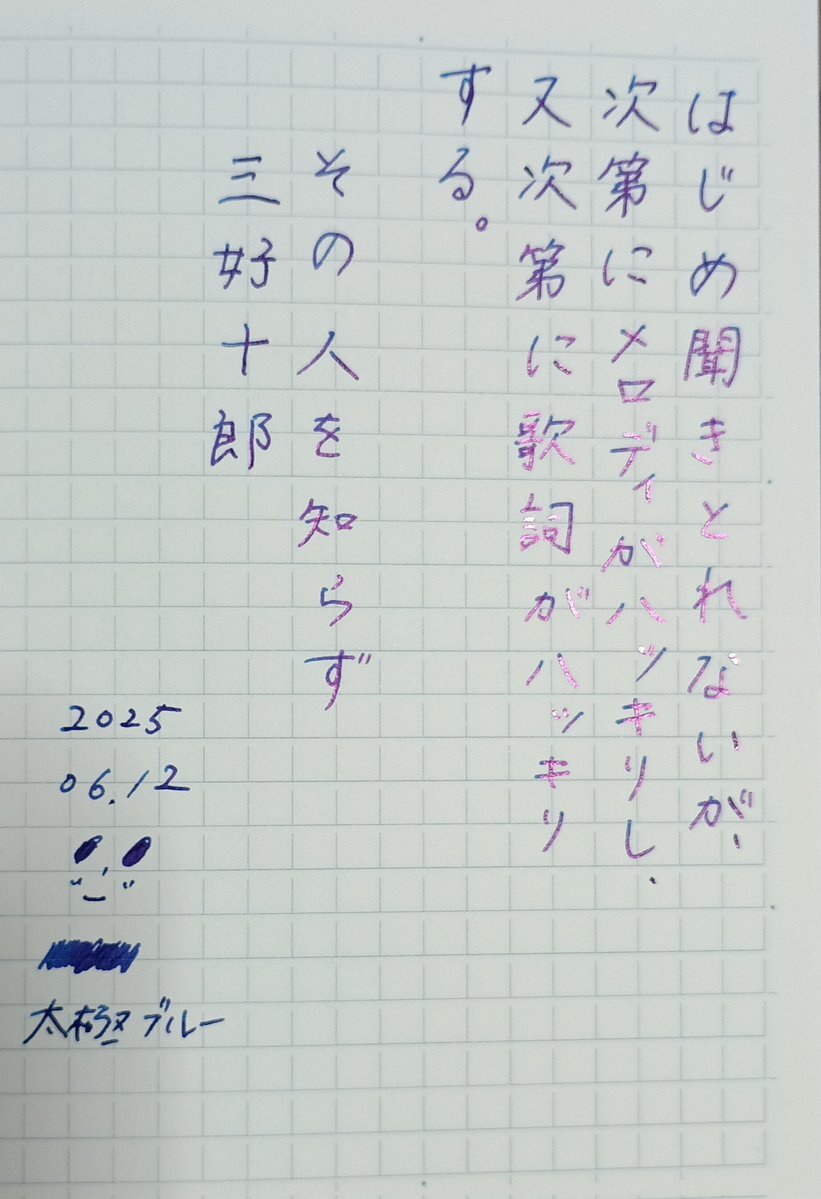 はじめ聞きとれないが、
次第にメロディがハッキリし、
又次第に歌詞がハッキリ
する。
その人を知らず
三好十郎
2025
06.12
太極ブルー